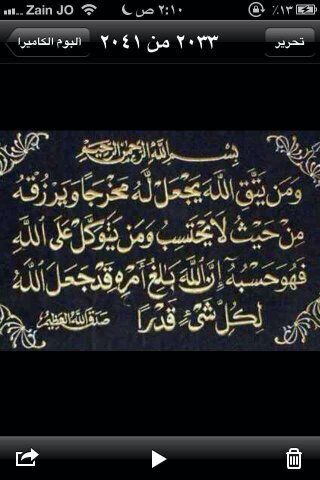 Zain JO ٢:١٠ ص ١٣٪
ألبوم الكاميرا ٢٠٣٣ من ٢٠٤١ تحرير
بسم الله الرحمن الرحيم
ومن يتق الله يجعل له مخرجا ويرزقه
من حيث لا يحتسب ومن يتوكل على الله
فهو حسبه إن الله بالغ أمره قد جعل الله
لكل شيء قدرا
صدق الله العظيم